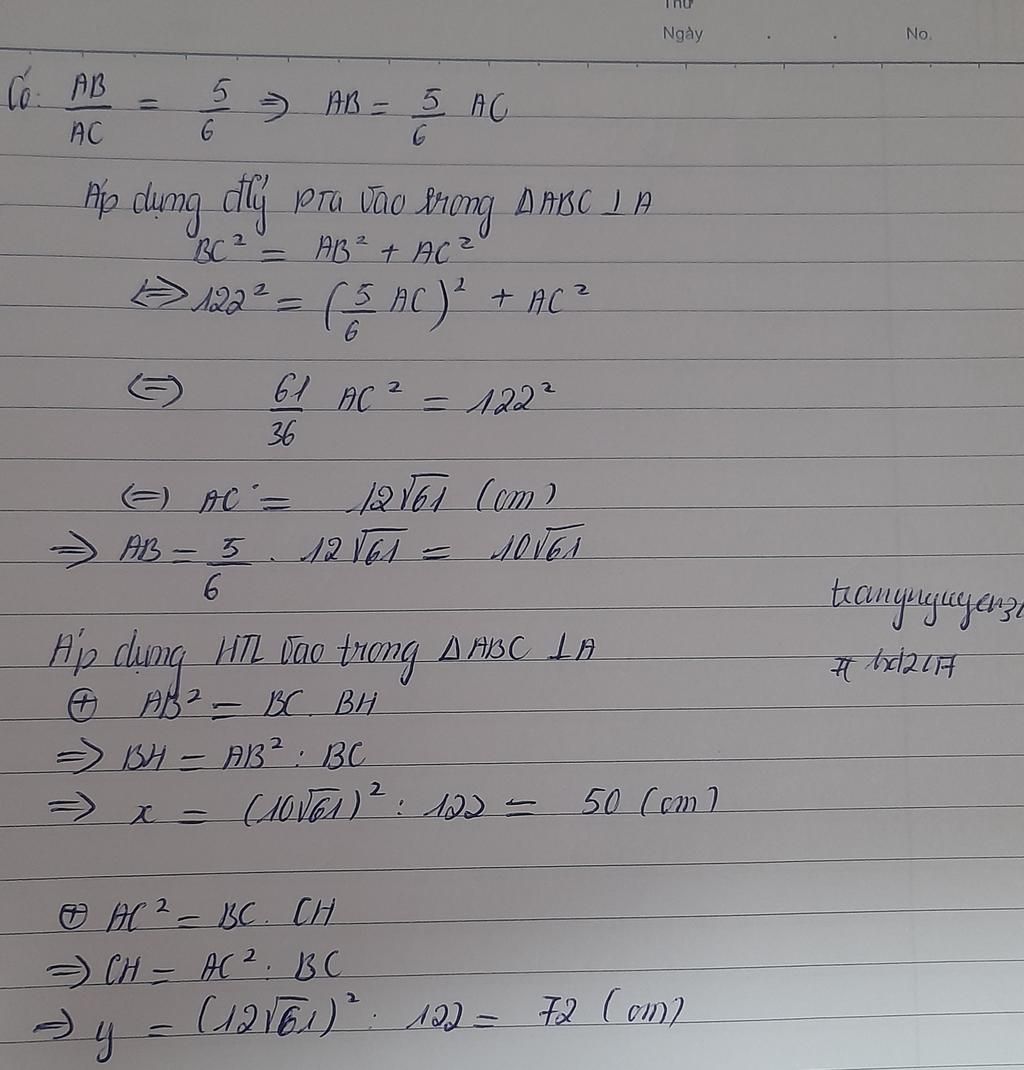 Thứ
Ngày . . No.
Có: AB/AC = 5/6 => AB = 5/6 AC
Áp dụng đlý pta vào trong ΔABC ⊥ A
BC² = AB² + AC²
<=> 122² = (5/6 AC)² + AC²
<=> 61/36 AC² = 122²
<=> AC = 12√61 (cm)
=> AB = 5/6 . 12√61 = 10√61
Áp dụng HTL vào trong ΔABC ⊥ A
⊕ AB² = BC . BH
=> BH = AB² : BC
=> x = (10√61)² : 122 = 50 (cm)
⊕ AC² = BC . CH
=> CH = AC² : BC
=> y = (12√61)² : 122 = 72 (cm)